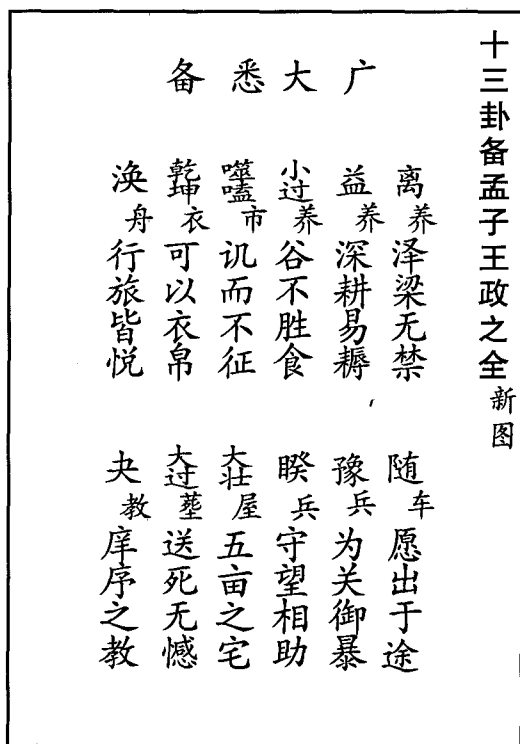 十三卦备孟子王政之全 新图
广大悉备
离 养 泽梁无禁
益 养 深耕易耨
小过 养 谷不胜食
噬嗑 市 讥而不征
乾坤 衣 可以衣帛
涣 舟 行旅皆悦
随 车 愿出于途
豫 兵 为关御暴
睽 兵 守望相助
大壮 屋 五亩之宅
大过 塟 送死无憾
夬 教 庠序之教